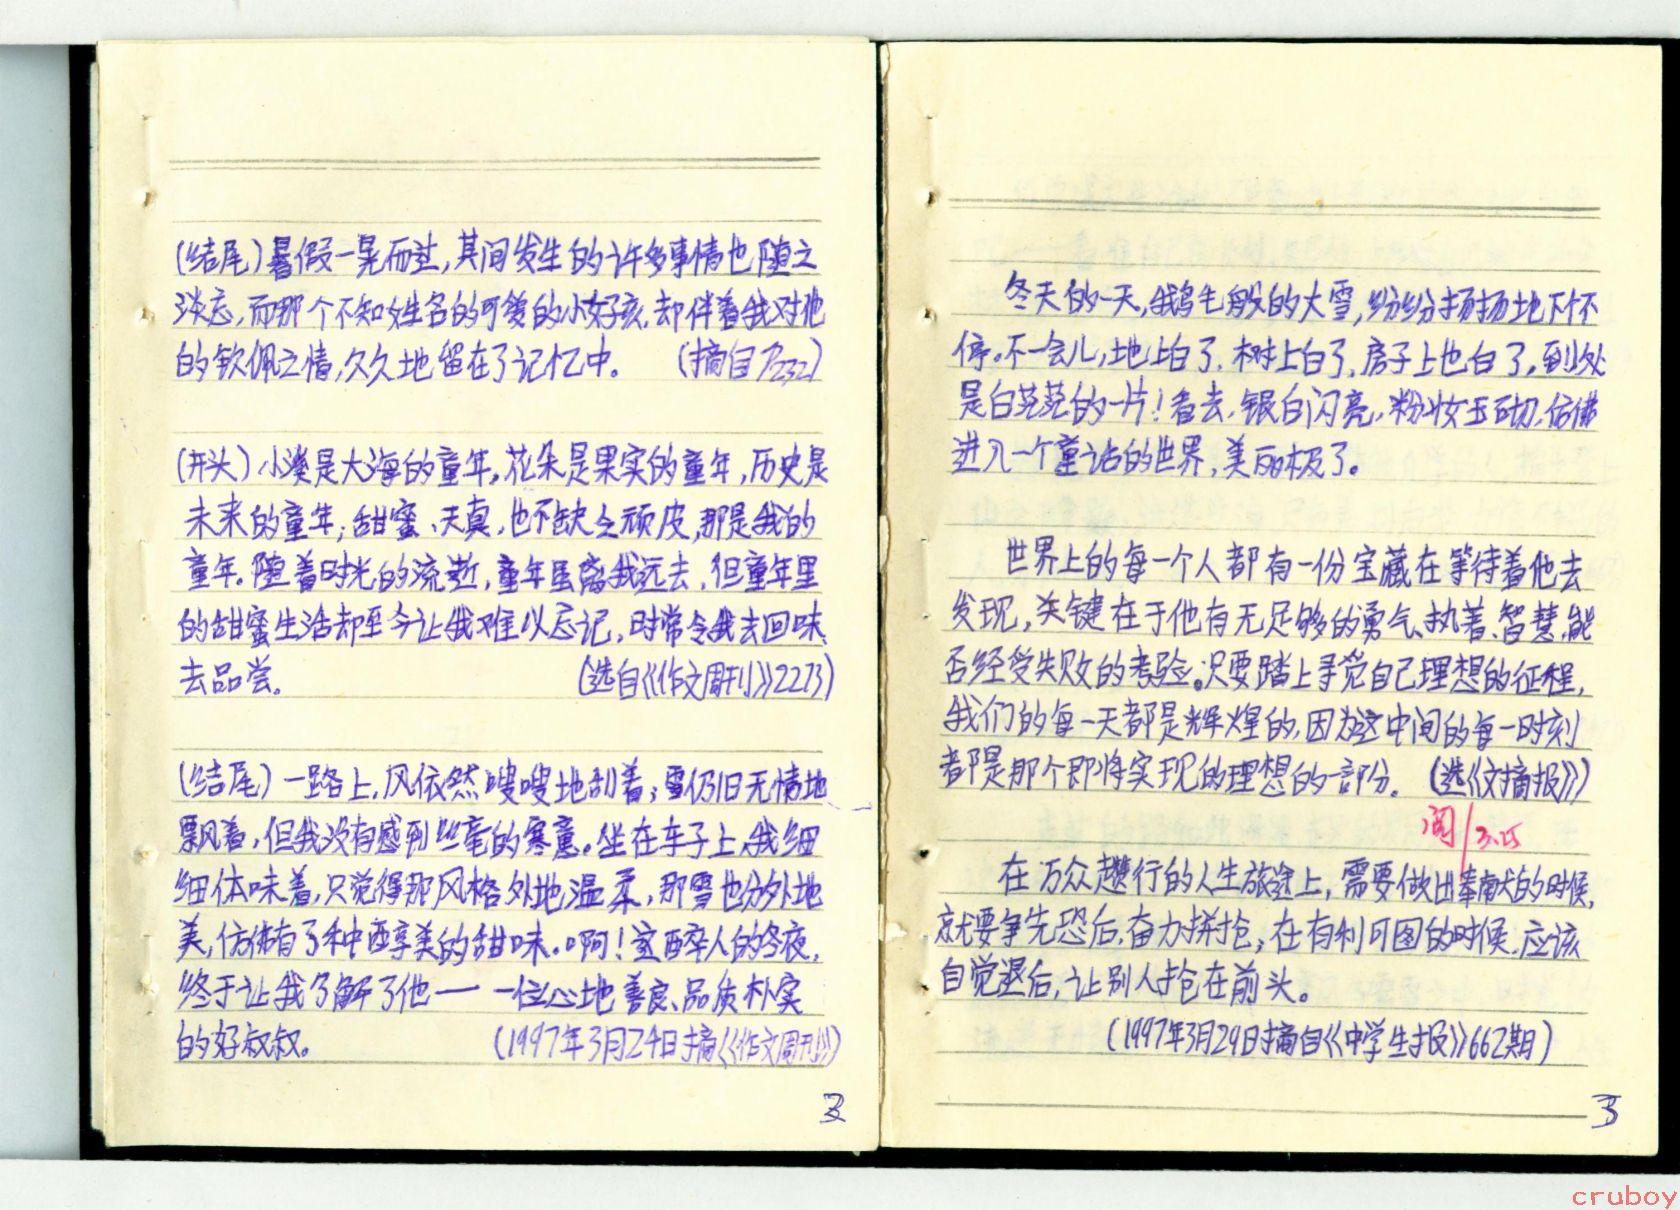 (结尾)暑假一晃而过,其间发生的许多事情也随之
淡忘,而那个不知姓名的可爱的小女孩,却伴着我对他
的钦佩之情,久久地留在了记忆中。 (摘自P232)
(开头)小溪是大海的童年,花朵是果实的童年,历史是
未来的童年;甜蜜、天真,也不缺乏顽皮,那是我的
童年。随着时光的流逝,童年虽离我远去,但童年里
的甜蜜生活却至今让我难以忘记,时常令我去回味、
去品尝。 (选自《作文周刊》2273)
(结尾)一路上,风依然嗖嗖地刮着;雪仍旧无情地
飘着,但我没有感到丝毫的寒意。坐在车子上,我细
细体味着,只觉得那风格外地温柔,那雪也分外地
美,仿佛有了种酒享美的甜味。啊!这醉人的冬夜,
终于让我了解了他——一位心地善良、品质朴实
的好叔叔。 (1997年3月24日摘《作文周刊》)
2
冬天的一天,鹅毛般的大雪,纷纷扬扬地下个不
停。不一会儿,地上白了,树上白了,房子上也白了,到处
是白茫茫的一片!看去,银白闪亮,粉妆玉砌,仿佛
进入一个童话的世界,美丽极了。
世界上的每一个人都有一份宝藏在等待着他去
发现,关键在于他有无足够的勇气、执着、智慧,能
否经受失败的考验。只要踏上寻觅自己理想的征程,
我们的每一天都是辉煌的,因为这中间的每一时刻
都是那个即将实现的理想的一部分。 (选《文摘报》)
阅/3.25
在万众趱行的人生旅途上,需要做出奉献的时候,
就要争先恐后,奋力拼抢,在有利可图的时候,应该
自觉退后,让别人抢在前头。
(1997年3月29日摘自《中学生报》662期)
3
cruboy